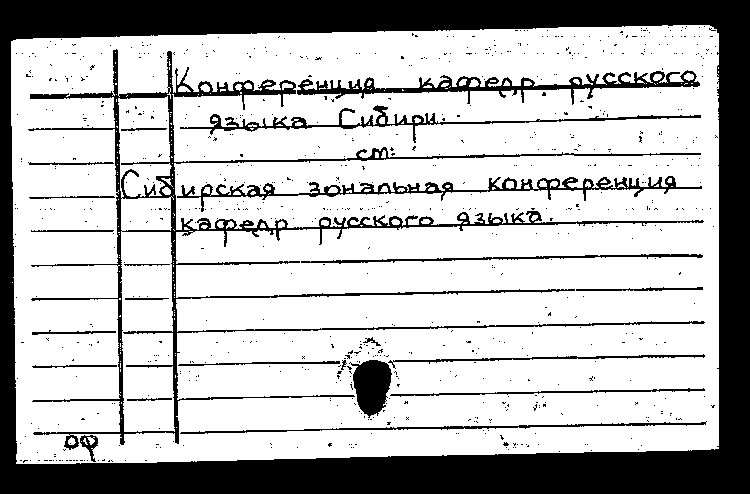 Конференция кафедр русского
языка Сибири.
см:
Сибирская зональная конференция
кафедр русского языка.
оф